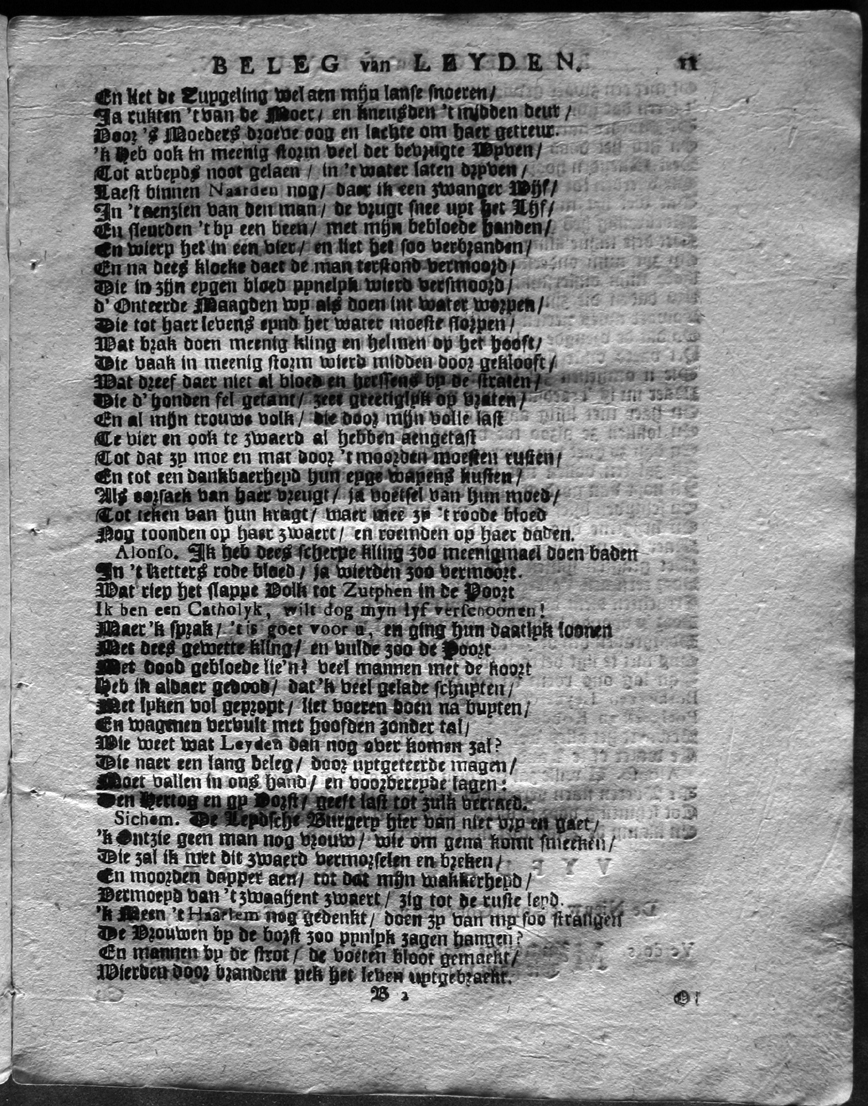 BELEG van LEYDEN. 11
En liet de Zupgeling wel aen mijn lanse snoeren/
Ja rukten 't van de Moer/ en kneusden 't midden deur/
Door 's Moeders droeve oog en lachte om haer getreur.
'k Heb ook in meenig storm veel der bevrugte Wyven/
Tot arbeyds noot gelaen/ in 't water laten dryven/
Laest binnen Naarden nog/ daer ik een zwanger Wijf/
In 't aenzien van den man/ de vrugt snee uyt het Lijf/
En sleurden 't by een been/ met mijn bebloede handen/
En wierp het in een vier/ en liet het soo verbranden/
En na dees kloeke daet de man terstond vermoord/
Die in zijn eygen bloed pynelyk wierd versmoord/
d' Onteerde Maagden wy als doen int water worpen/
Die tot haer levens eynd het water moeste slorpen/
Wat brak doen meenig kling en helmen op het hooft/
Die vaak in meenig storm wierd midden door geklooft/
Wat dreef daer niet al bloed en herssens by de straten/
Die d' honden fel getant/ zeer greetiglyk op vraten/
En al mijn trouwe volk/ die door mijn volle last
Te vier en ook te zwaerd al hebben aengetast
Tot dat zy moe en mat door 't moorden moesten rusten/
En tot een dankbaerheyd hun eyge wapens kusten/
Als oorsaek van haer vreugt/ ja voetsel van hun moed/
Tot teken van hun kragt/ waer mee zy 't roode bloed
Nog toonden op haer zwaert/ en roemden op haer daden.
Alonso. Ik heb dees scherpe kling zoo meenigmael doen baden
In 't ketters rode bloed/ ja wierden zoo vermoort.
Wat riep het slappe Volk tot Zutphen in de Poort
Ik ben een Catholyk, wilt dog myn lyf verschoonen!
Maer 'k sprak/ 't is goet voor u, en ging hun daatlyk loonen
Met dees gewette kling/ en vulde zoo de Poort
Met dood gebloede lie'n! veel mannen met de koort
Heb ik aldaer gedood/ dat 'k veel gelade schuyten/
Met lyken vol gepropt/ liet voeren doen na buyten/
En wagenen vervult met hoofden zonder tal/
Wie weet wat Leyden dan nog over komen zal?
Die naer een lang beleg/ door uytgeteerde magen/
Moet vallen in ons hand/ en voorbereyde lagen:
Den Hertog en gy Vorst/ geeft last tot zulk verraed.
Sichem. De Leydsche Burgery hier van niet vry en gaet/
'k Ontzie geen man nog vrouw/ wie om gena komt smeeken/
Die zal ik met dit zwaerd vermorselen en breken/
En moorden dapper aen/ tot dat mijn wakkerheyd/
Vermoeyd van 't zwaaijent zwaert/ zig tot de ruste leyd.
'k Meen 't Haerlem nog gedenkt/ doen zy van my soo strangen
De Vrouwen by de borst zoo pynlyk zagen hangen?
En mannen by de strot/ de voeten bloot gemaekt/
Wierden door brandent pek het leven uytgebraekt.
B 2